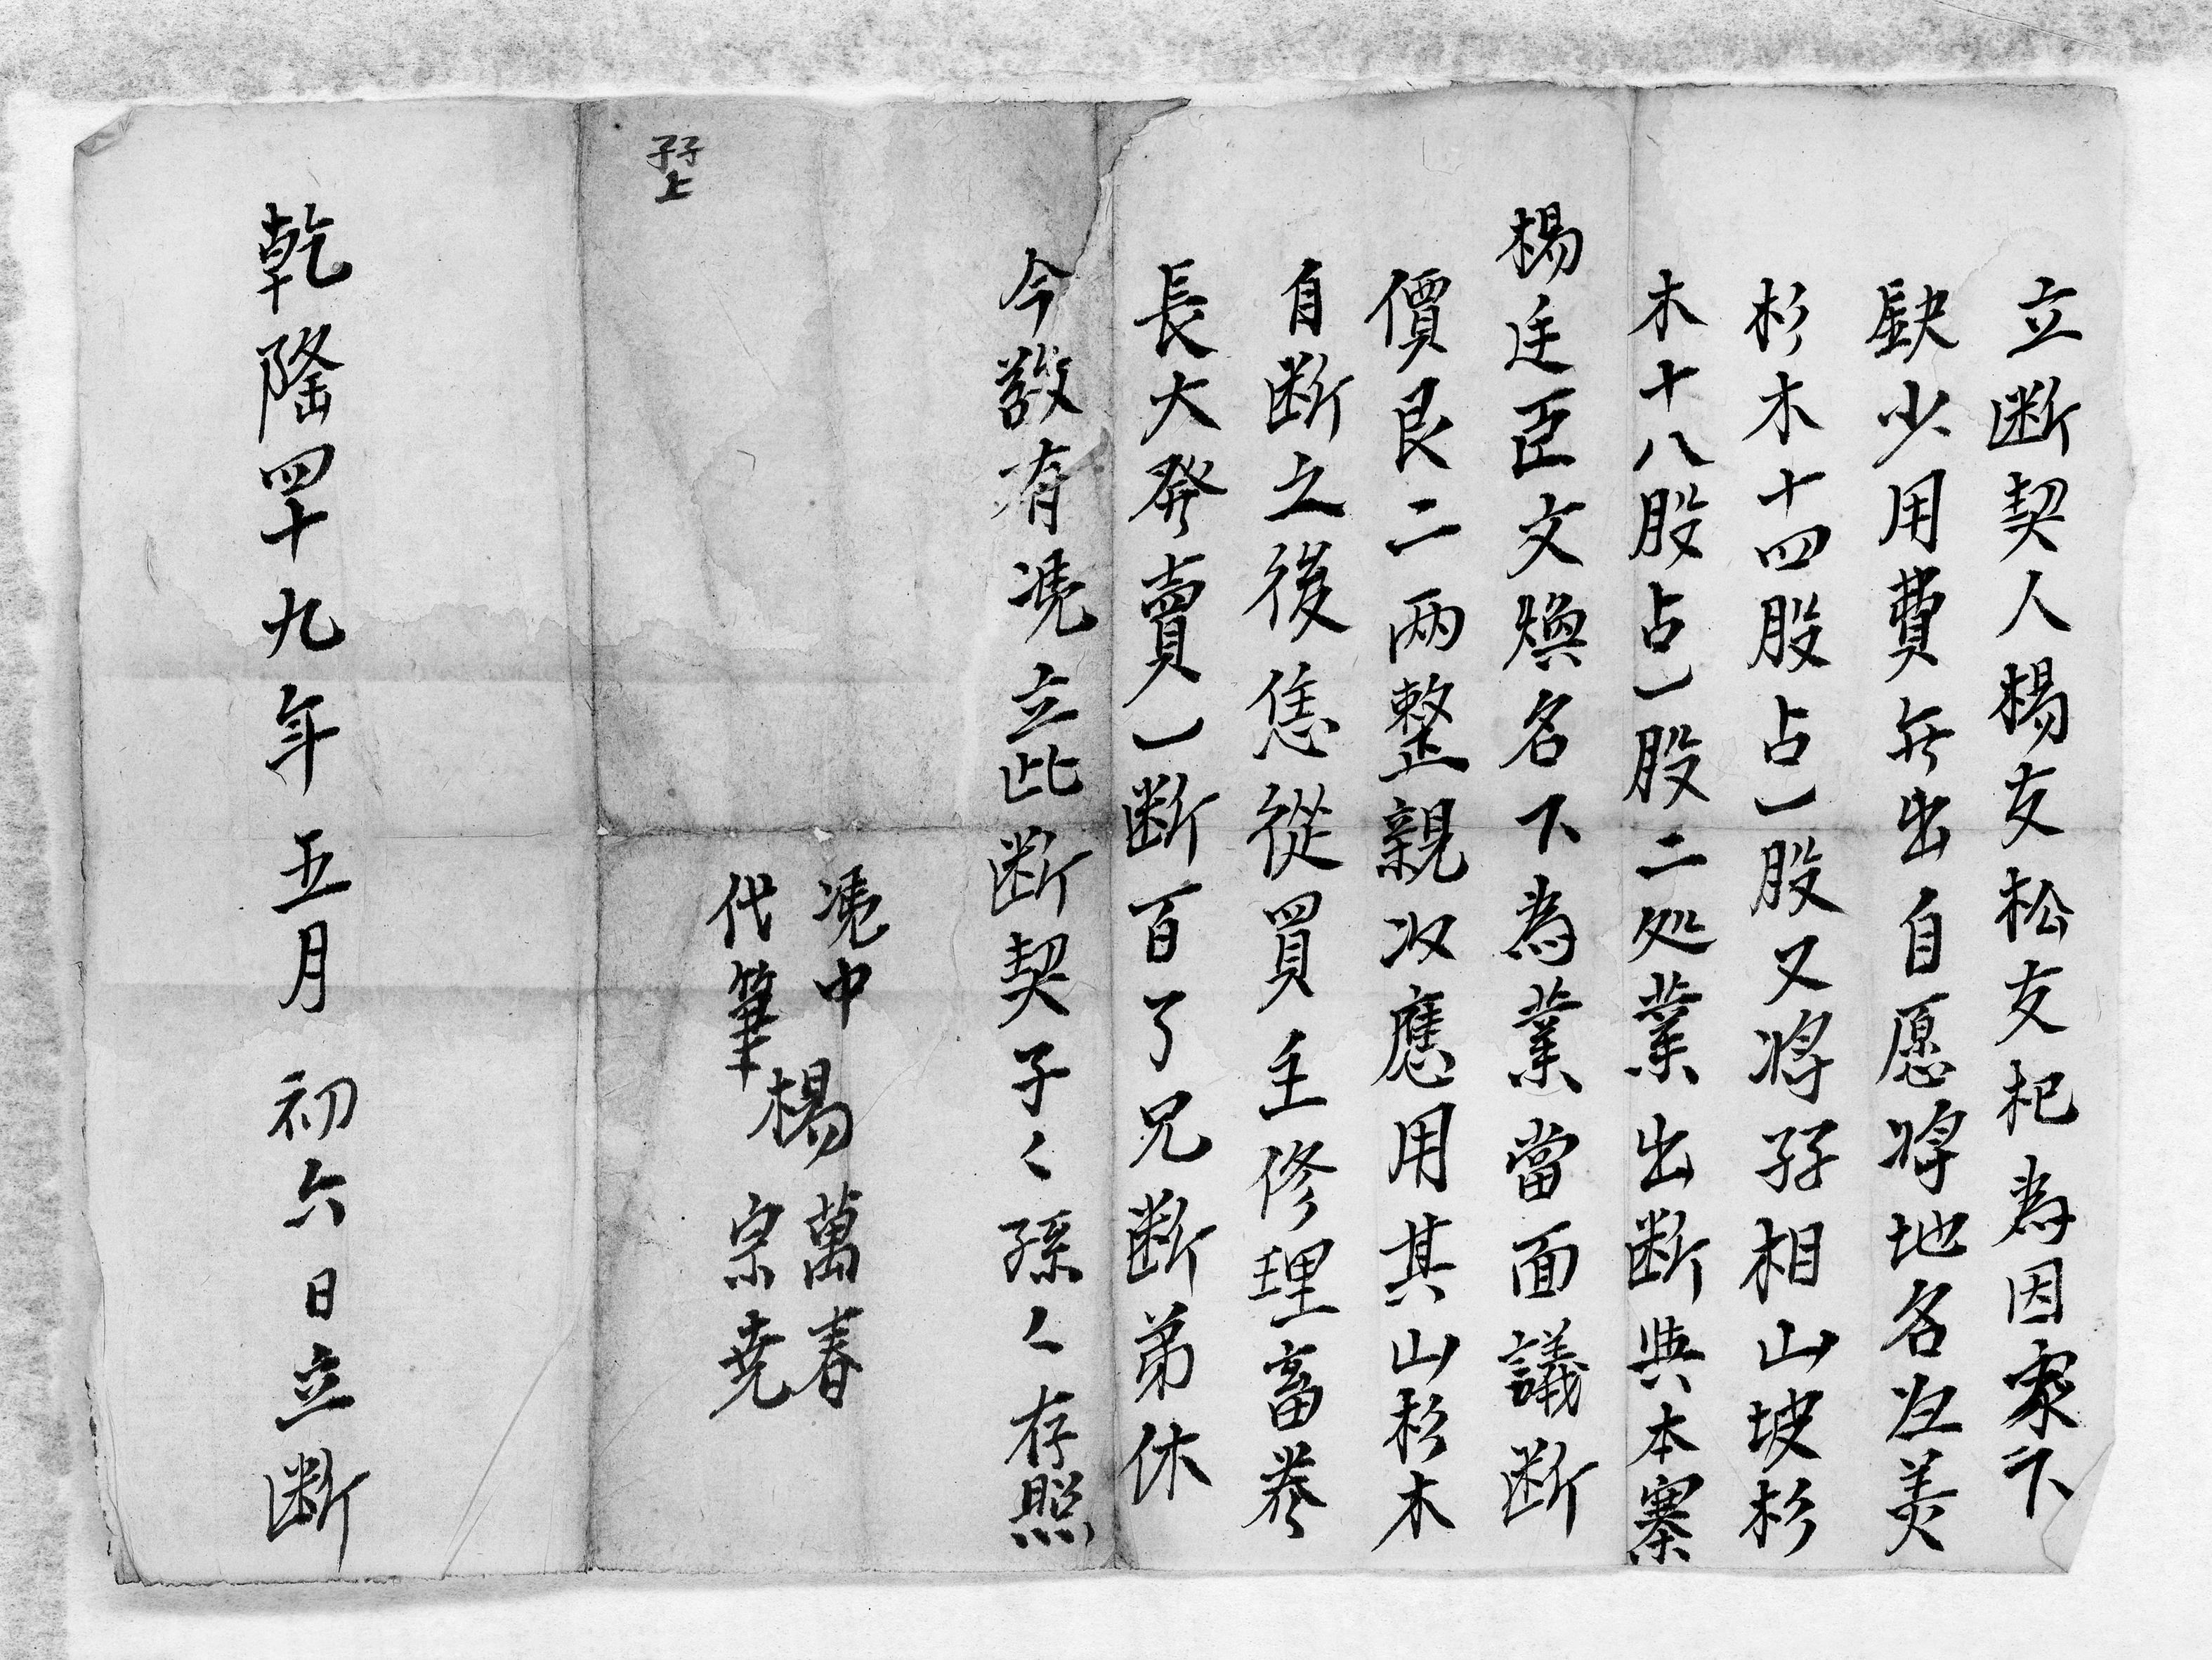 立断契人楊友松友杞為因家下
缺少用費無出自愿将地名冲美
杉木十四股占一股又将孖相山坡杉
木十八股占一股二处業出断與本寨
楊廷臣文煥名下為業當面議断
價艮二両整親収應用其山杉木
自断之後恁從買主修理畜養
長大發賣一断百了兄断弟休
今欲有凴立此断契子〻孫〻存照
凴中 楊萬春
代筆 宗堯
孖上
乾隆四十九年五月初六日立断